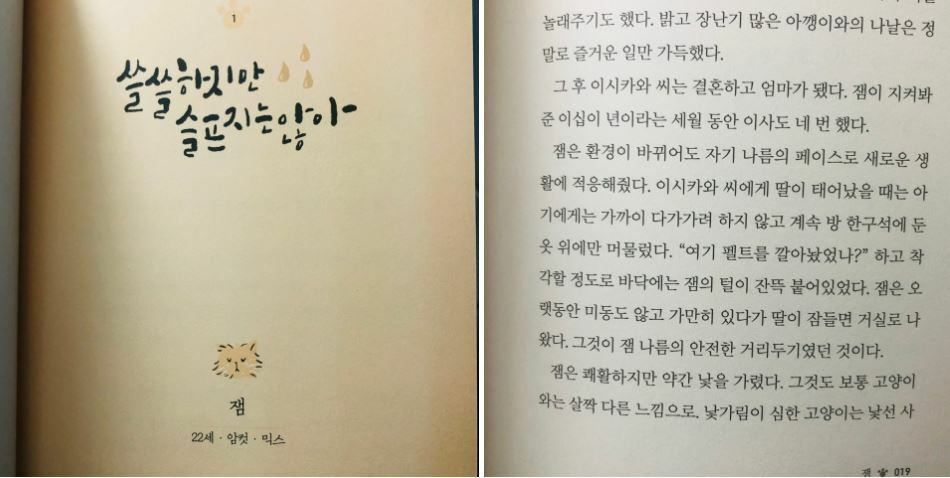 1
쓸쓸하지만
슬프지는 않아
잼
22세 · 암컷 · 믹스
놀래주기도 했다. 밝고 장난기 많은 아깽이와의 나날은 정
말로 즐거운 일만 가득했다.
그 후 이시카와 씨는 결혼하고 엄마가 됐다. 잼이 지켜봐
준 이십이 년이라는 세월 동안 이사도 네 번 했다.
잼은 환경이 바뀌어도 자기 나름의 페이스로 새로운 생
활에 적응해줬다. 이시카와 씨에게 딸이 태어났을 때는 아
기에게는 가까이 다가가려 하지 않고 계속 방 한구석에 둔
옷 위에만 머물렀다. “여기 펠트를 깔아놨었나?” 하고 착
각할 정도로 바닥에는 잼의 털이 잔뜩 붙어있었다. 잼은 오
랫동안 미동도 않고 가만히 있다가 딸이 잠들면 거실로 나
왔다. 그것이 잼 나름의 안전한 거리두기였던 것이다.
잼은 쾌활하지만 약간 낯을 가렸다. 그것도 보통 고양이
와는 살짝 다른 느낌으로. 낯가림이 심한 고양이는 낯선 사
잼 019